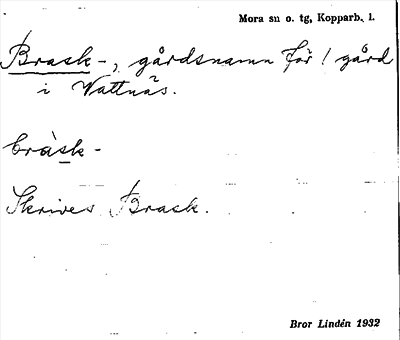 Mora sn o. tg, Kopparb. l.
Brask-, gårdsnamn för 1 gård
i Vattnäs.
bràsk-
Skrives Brask.
Bror Lindén 1932